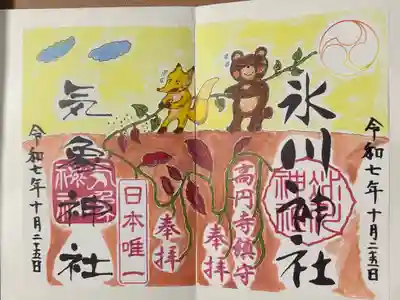 令和七年十月二十五日
氷川神社
高円寺鎮守
奉拝
令和七年十月二十五日
気象神社
奉拝
日本唯一